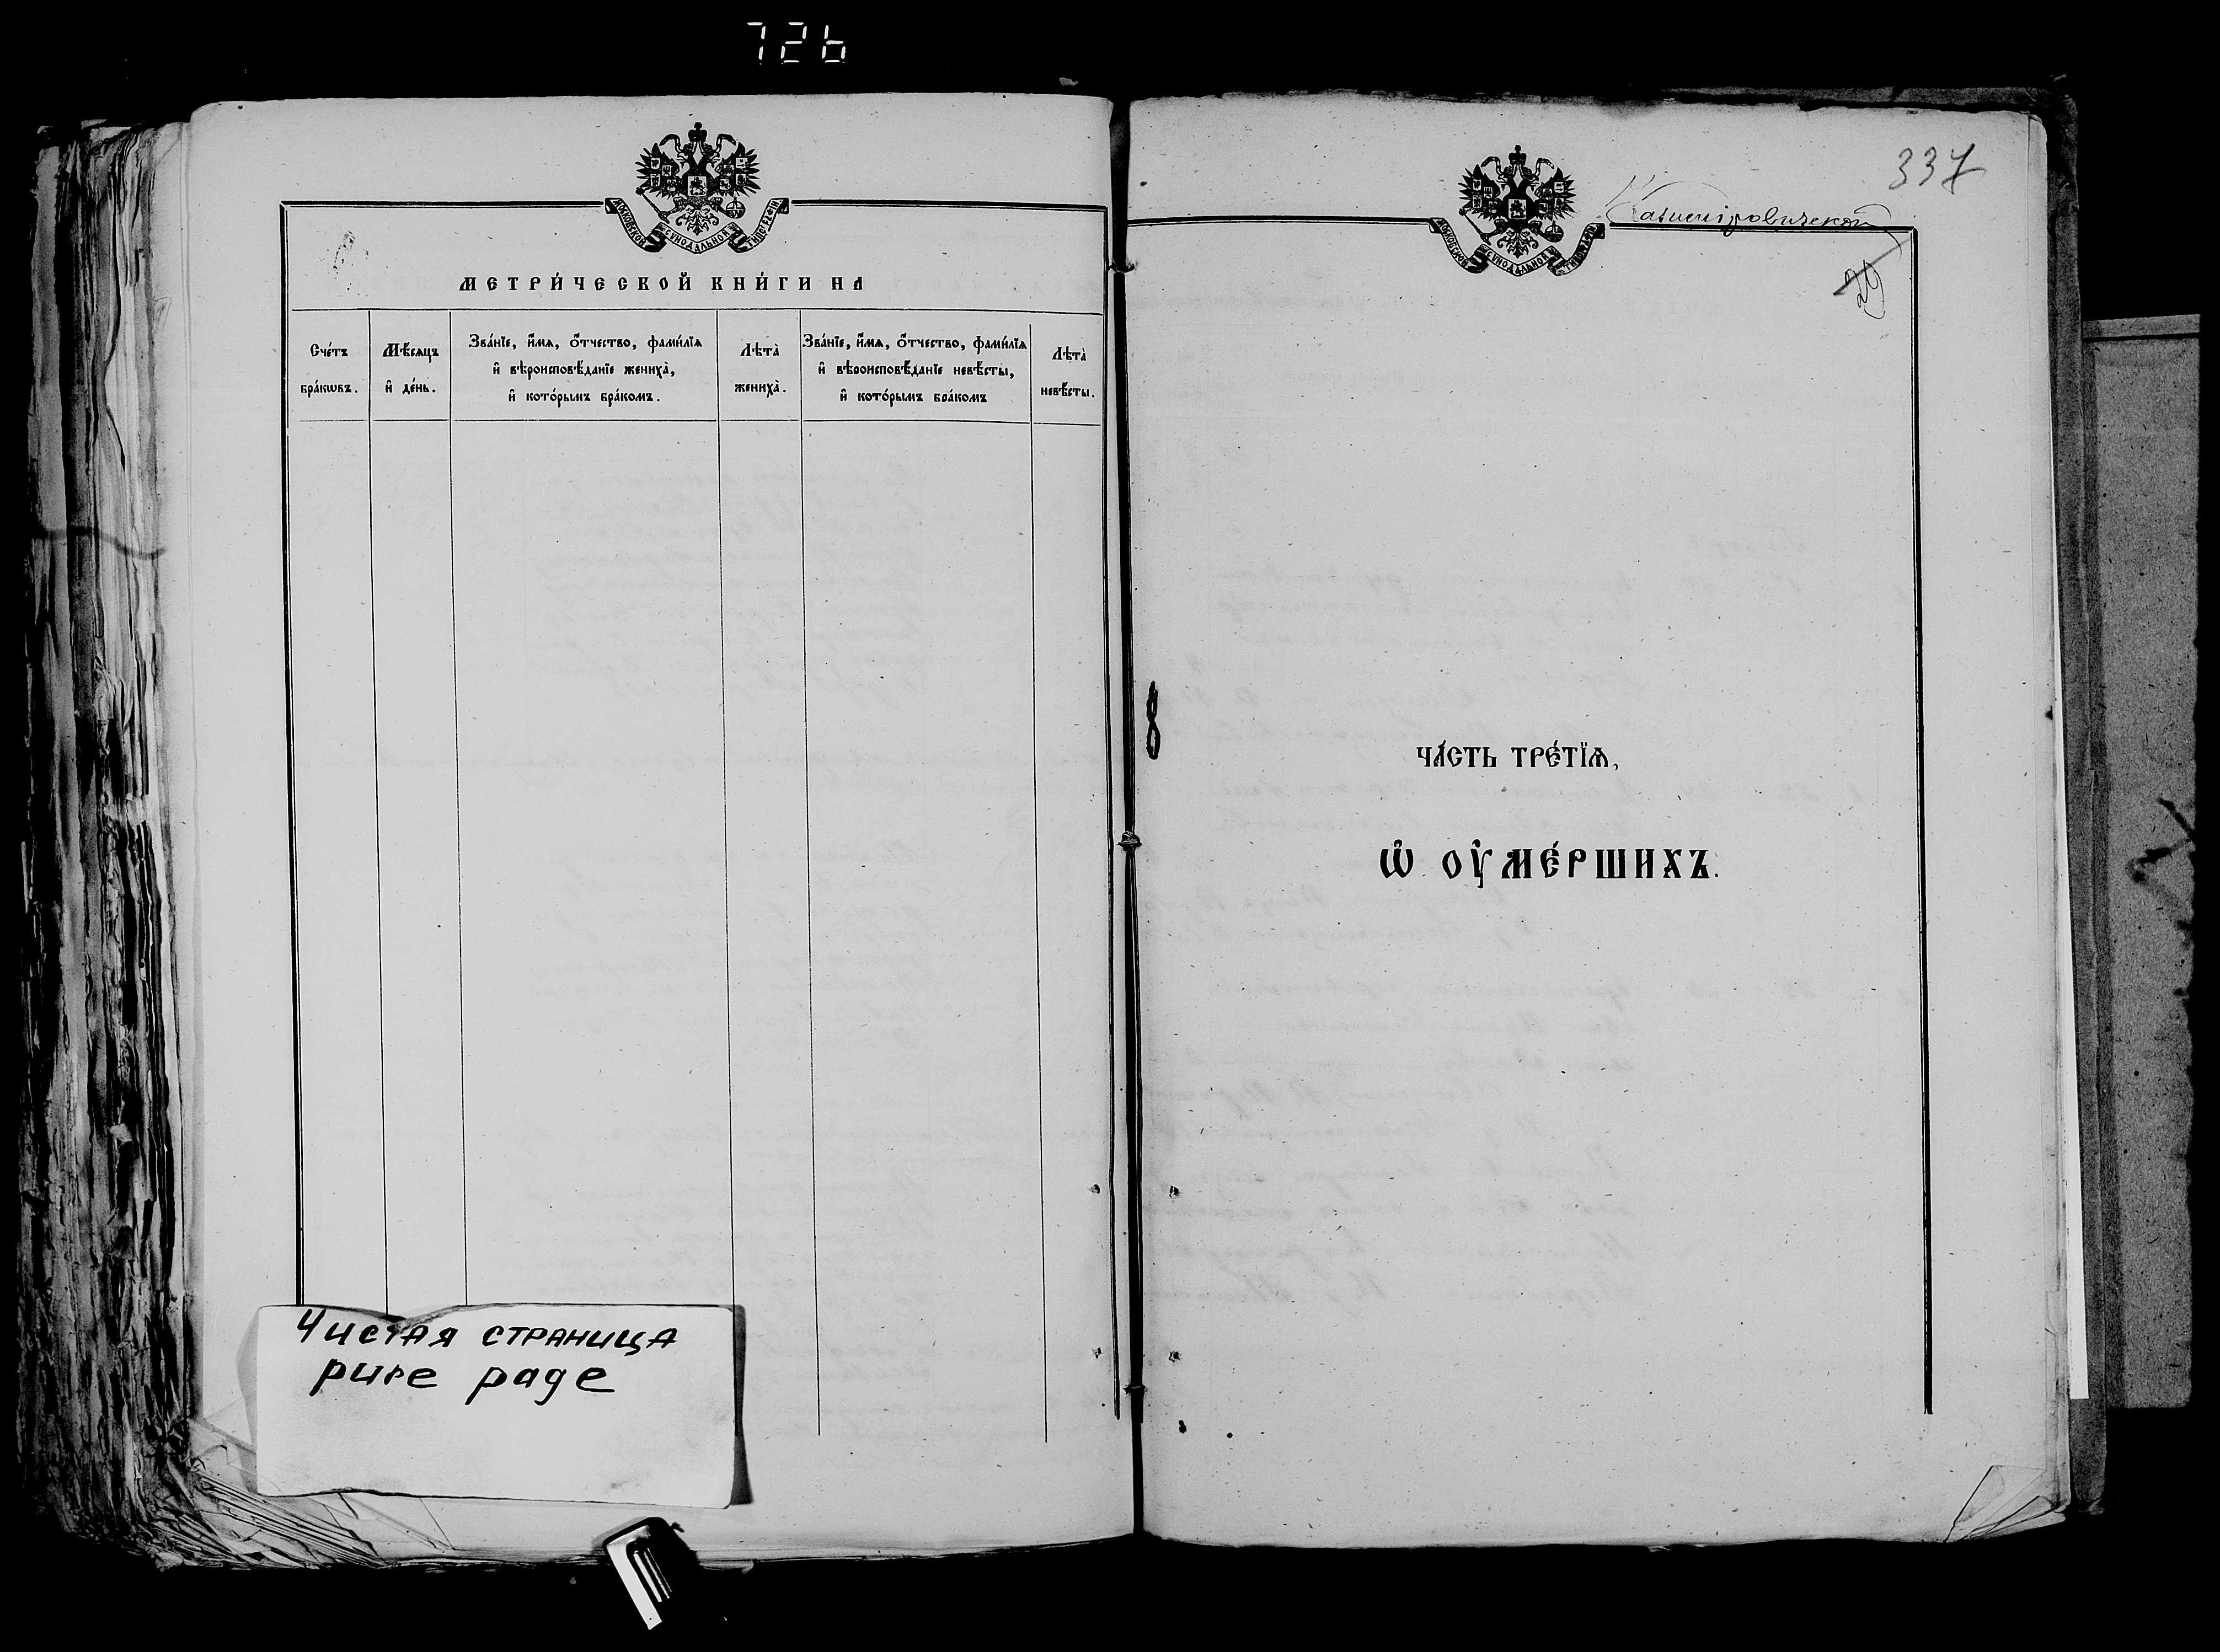 726
МОСКОВСКОЙ СѴНОДАЛЬНОЙ ТИПОГРАФІИ
МЕТРИ́ЧЕСКОЙ КНИ́ГИ НА
Сче́тъ бра́кѡвъ.
Мѣ́сяцъ и҆ де́нь.
Зва́нїе, и҆́мѧ, ѻ҆́тчество, фами́лїѧ
и҆ вѣроисповѣ́данїе жениха̀,
и҆ кото́рымъ бра́комъ.
Лѣта̀ жениха̀.
Зва́нїе, и҆́мѧ, ѻ҆́тчество, фами́лїѧ
и҆ вѣроисповѣ́данїе невѣ́сты,
и҆ кото́рымъ бра́комъ
Лѣта̀ невѣ́сты.
Чистая страница
pure page
337
Казимировической
29
МОСКОВСКОЙ СѴНОДАЛЬНОЙ ТИПОГРАФІИ
ЧА́СТЬ ТРЕ́ТЇѦ,
Ѡ҆ ОУ҆МЕ́РШИХЪ.